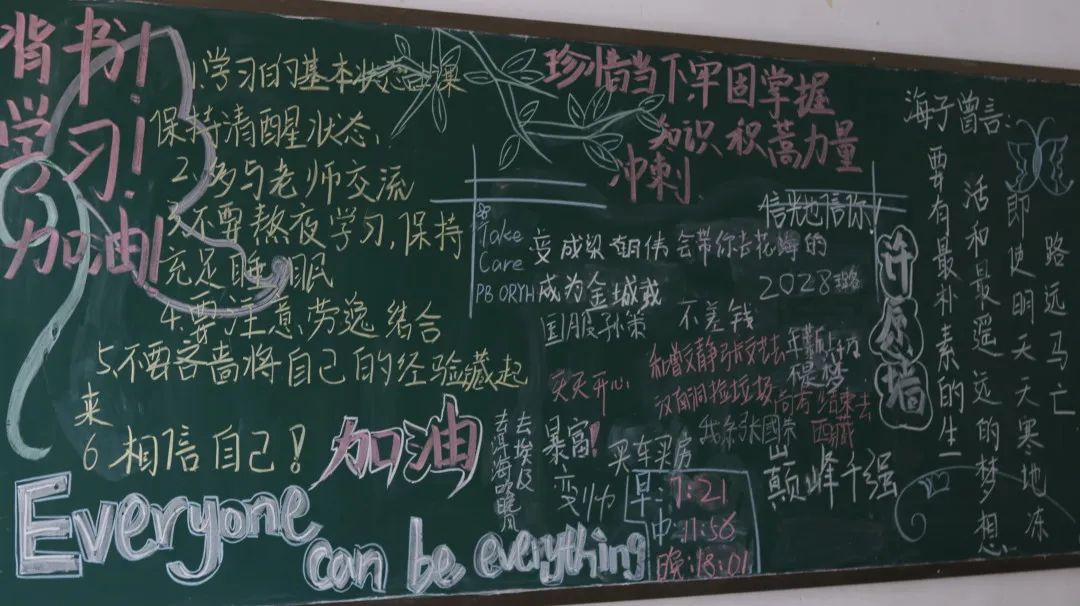 背书!
学习!
加油!
1.学习的基本状态
保持清醒状态、
2.多与老师交流
3.不要熬夜学习,保持
充足睡眠
4.要注意劳逸结合
5.不要吝啬将自己的经验藏起
来
6 相信自己!
加油
Everyone
can be everything
珍惜当下,牢固掌握
知识 积蓄力量
冲刺
Take
Care
PB ORYH
变成梁朝伟会带你去花海的
成为金城武
国服孙策
不差钱
信光也信你!
2028
天天开心
暴富!
变帅
买车买房
去埃及
去洱海
我亲张国荣
高考结束去
西藏
山
巅峰千强
早:7:21
中:11:56
晚:18:01
许愿墙
海子曾言:
要有最朴素的生
活和最遥远的梦想
即使明天天寒地冻
路远马亡